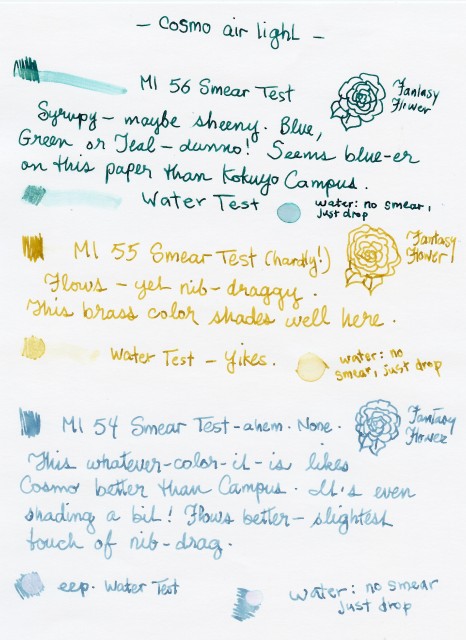 - Cosmo air light -
MI 56 Smear Test
Fantasy
Flower
Syrupy - maybe sheeny. Blue,
Green or Teal - dunno! Seems blue-er
on this paper than Kokuyo Campus.
Water Test
water: no smear,
just drop
MI 55 Smear Test (hardly!)
Fantasy
Flower
Flows - yet nib-draggy.
This brass color shades well here.
Water Test - Yikes.
water: no
smear, just drop
MI 54 Smear Test - ahem. None.
Fantasy
Flower
This whatever-color-it-is likes
Cosmo better than Campus. It's even
shading a bit! Flows better - slightest
touch of nib-drag.
eep. Water Test
water: no smear
just drop